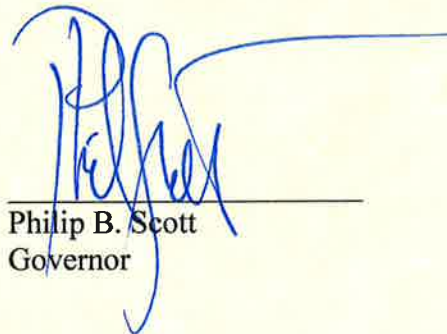 Phil Scott
Philip B. Scott
Governor